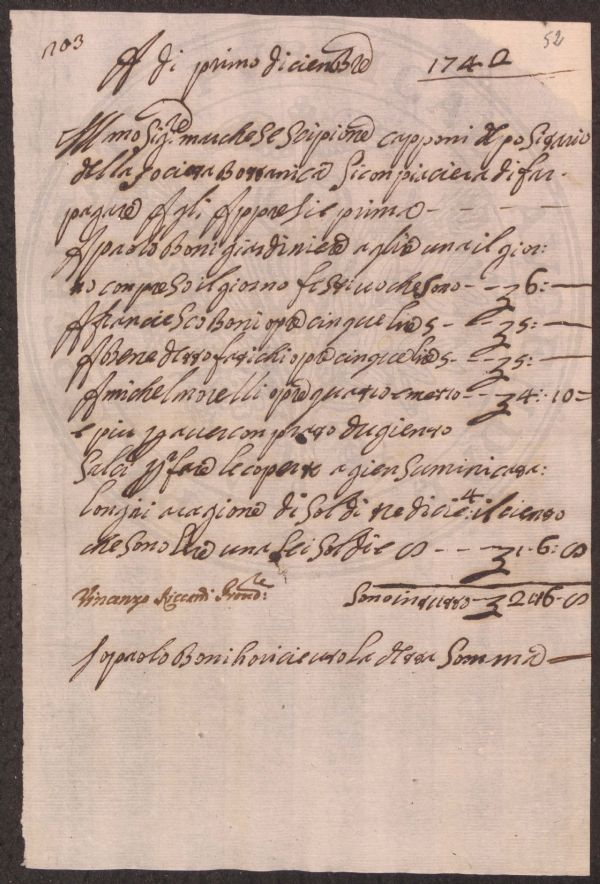 103
52
A di primo dicienbre 1740
Ill mo Sig.re marchese Scipione capponi depositario
della Società Bottanica Si conpiaciera di far
pagare Agli Appresi e prima
A paolo Boni giardiniere a glire una il gior:
no conpreso il giorno festivo che sono 6:
A franciesco Boni opre cinque lire 5 5:
A Benedetto farichi opre cinque lire 5 5:
A michel morelli opre quatro e mezzo 4: 10
e piu p. aver conprato dugiento
Salci p. fare le coperte a gien Sumini cata:
longni a ragione di Soldi tredici e 4 il ciento
che sono lire una Sei Soldi e 8 1: 6: 8
Vincenzo Riccardi Prov.re
Sono in tutto 2 16 8
Io paolo Boni ho riceuto la detta Somma